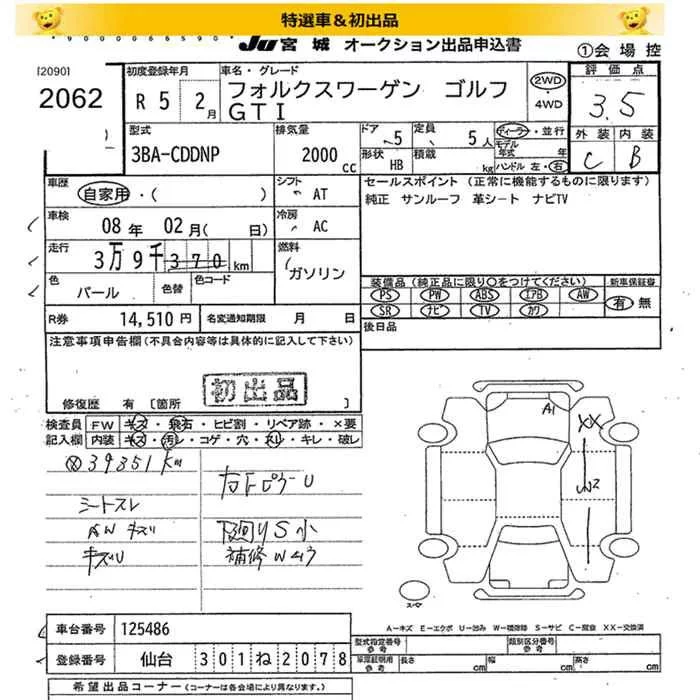 特選車&初出品
*9000066590*
JU 宮城 オークション出品申込書
①会場控
[2090]
2062
初度登録年月
R 5 2月
車名・グレード
フォルクスワーゲン ゴルフ
GTI
2WD
・
4WD
評価点
3.5
外装 内装
C B
型式
3BA-CDDNP
排気量
2000 cc
ドア 5
定員 5人
形状 HB
積載 kg
ディーラー・並行
モデル年式 年
ハンドル 左・右
車歴
自家用・( )
シフト AT
セールスポイント (正常に機能するものに限ります)
純正 サンルーフ 革シート ナビTV
車検
08年 02月( 日)
冷房 AC
走行
3万9千370km
燃料
ガソリン
色
パール
色替
色コード
装備品(純正品に限り○をつけてください)
新車保証書
PS PW ABS エアB AW
SR ナビ TV カワ
有 無
R券 14,510円
名変通知期限 月 日
後日品
注意事項申告欄(不具合内容等は具体的に記入して下さい)
初出品
修復歴 有 [箇所 ]
検査員
記入欄
FW キズ・飛石・ヒビ割・リペア跡・×要
内装 キズ・汚レ・コゲ・穴・スレ・キレ・破レ
39851km
シートスレ
AW キズ
キズU
右FピラーU
下廻りS小
補修Wムラ
A1
XX
W2
スペア
A−キズ E−エクボ U−凹み W−補修跡 S−サビ C−腐食 XX−交換済
車台番号 125486
登録番号 仙台 301ね2078
型式指定番号
参考
類別区分番号
参考
車庫証明用
参考
長さ cm
幅 cm
高さ cm
希望出品コーナー(コーナーは各会場により異なります。)